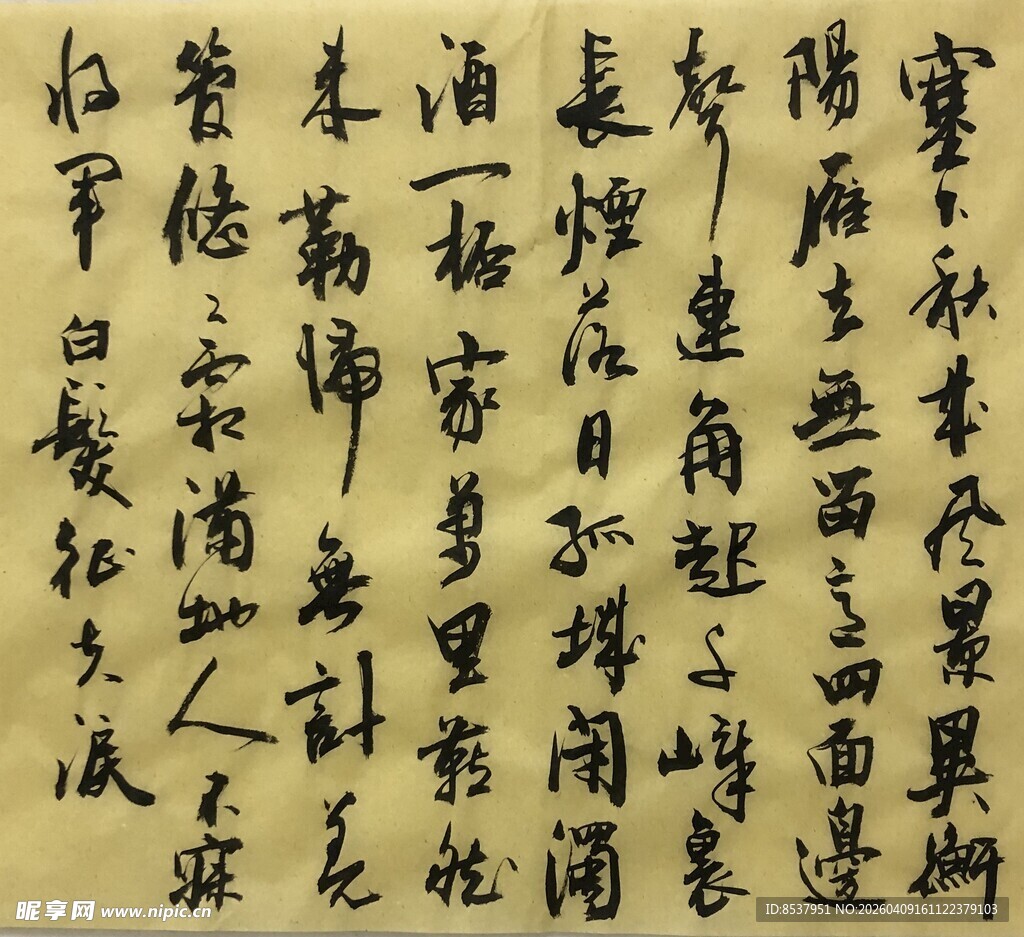 塞下秋来風景異衡
陽雁去無留意四面邊
聲連角起千嶂裏
長煙落日孤城閉濁
酒一杯家萬里燕然
未勒歸無計羌
管悠〻霜滿地人不寐
将軍白髮征夫淚
昵享网 www.nipic.cn
ID:8537951 NO:20260409161122379103